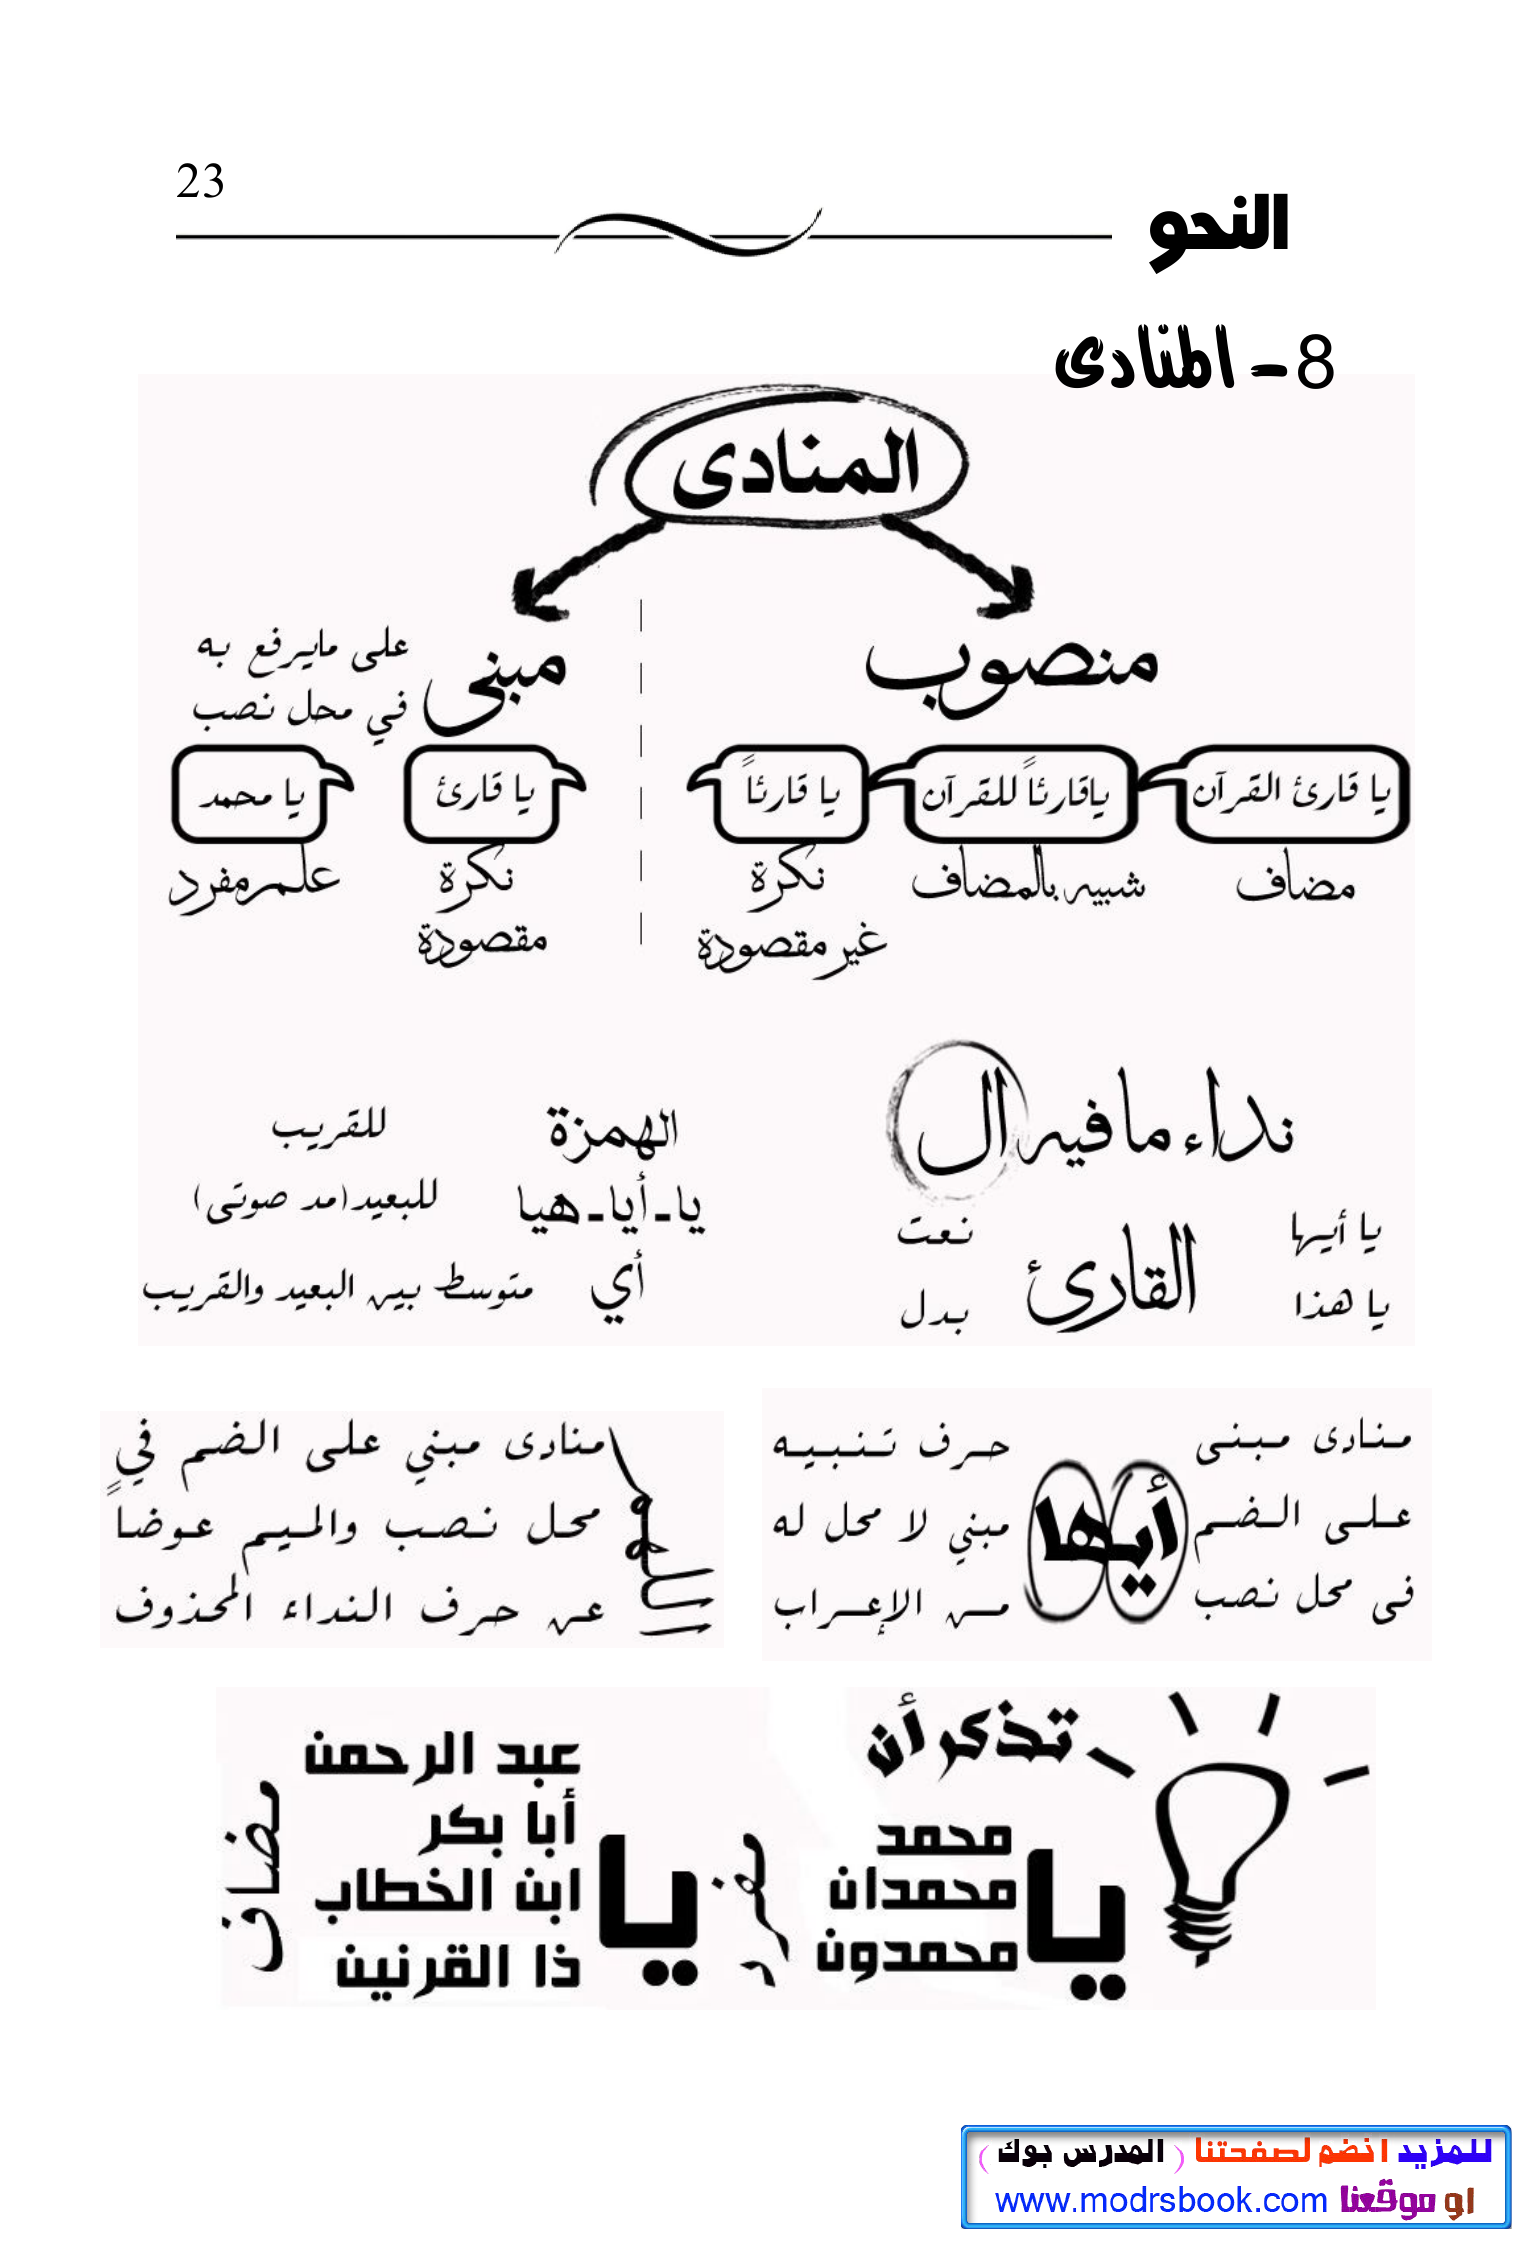 23
النحو
8 - المنادى
المنادى
منصوب
مبنى
على مايرفع به
في محل نصب
يا قارئ القرآن
ياقارئاً للقرآن
يا قارئاً
يا قارئ
يا محمد
مضاف
شبيه بالمضاف
نكرة
غير مقصودة
نكرة
مقصودة
علم مفرد
نداء ما فيه ال
يا أيها
يا هذا
القارئ
نعت
بدل
الهمزة
للقريب
يا - أيا - هيا
للبعيد (مد صوتى)
أي
متوسط بين البعيد والقريب
منادى مبنى
على الضم
فى محل نصب
أيها
حرف تنبيه
مبني لا محل له
من الإعراب
اللهم
منادى مبني على الضم في
محل نصب والميم عوضاً
عن حرف النداء المحذوف
تذكر أن
يا
محمد
محمدان
محمدون
مفرد
يا
عبد الرحمن
أبا بكر
ابن الخطاب
ذا القرنين
مضاف
للمزيد انضم لصفحتنا ( المدرس بوك )
او موقعنا www.modrsbook.com